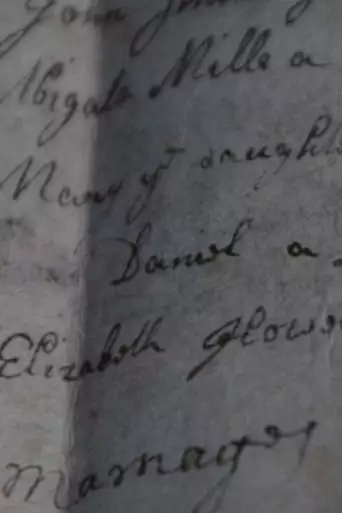 John
Abigale Mills a
Mary yt daught
Daniel a
Elizabeth Glove
Marriages